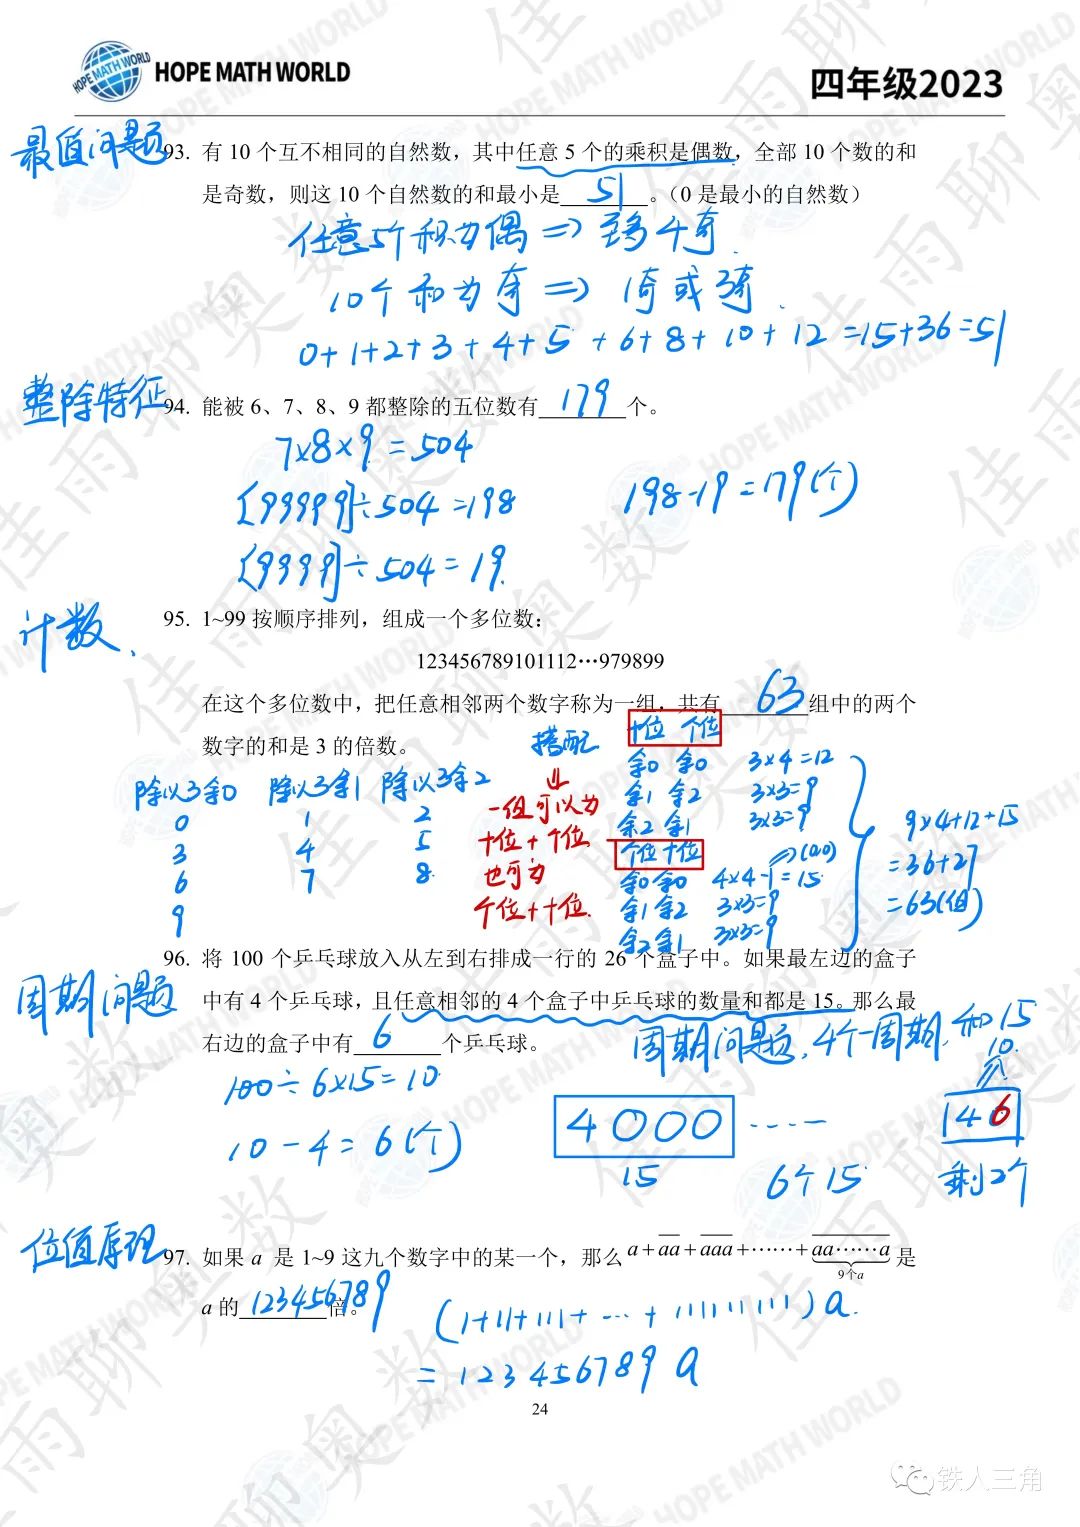 HOPE MATH WORLD
四年级2023
最值问题
93. 有 10 个互不相同的自然数，其中任意 5 个的乘积是偶数，全部 10 个数的和
是奇数，则这 10 个自然数的和最小是 51 。（0 是最小的自然数）
任意5个积为偶 => 至多4奇.
10个和为奇 => 1奇或3奇.
0+1+2+3+4+5+6+8+10+12=15+36=51
整除特征
94. 能被 6、7、8、9 都整除的五位数有 179 个。
7×8×9=504
[99999]÷504=198
198-19=179(个)
[9999]÷504=19.
计数.
95. 1~99 按顺序排列，组成一个多位数：
123456789101112…979899
在这个多位数中，把任意相邻两个数字称为一组，共有 63 组中的两个
数字的和是 3 的倍数。
搭配
十位 个位
余0 余0 3×4=12
余1 余2 3×3=9
余2 余1 3×3=9
个位 十位
=>(0,0)
余0 余0 4×4-1=15
余1 余2 3×3=9
余2 余1 3×3=9
9×4+12+15
=36+27
=63(组)
除以3余0 除以3余1 除以3余2
0 1 2
3 4 5
6 7 8
9
一组可以为
十位+个位
也可为
个位+十位.
96. 将 100 个乒乓球放入从左到右排成一行的 26 个盒子中。如果最左边的盒子
中有 4 个乒乓球，且任意相邻的 4 个盒子中乒乓球的数量和都是 15。那么最
右边的盒子中有 6 个乒乓球。
周期问题
周期问题,4个一周期,和15
100÷6×15=10
10-4=6(个)
4 0 0 0 ……
15
6个15
10.
4 6
剩2个
位值原理
97. 如果 a 是 1~9 这九个数字中的某一个，那么 a+aa+aaa+……+aa……a 是
9个a
a 的 123456789 倍。
(1+11+111+…+111111111)a
=123456789a
24
铁人三角
佳雨聊奥数